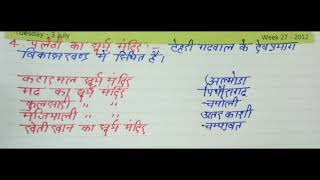 Tuesday - 3 July
Week 27 - 2012
4- पलेठी का सूर्य मंदिर :- टेहरी गढवाल के देवप्रयाग
विकासखण्ड में स्थित है।
कटारमल सूर्य मंदिर अल्मोडा
मढ का सूर्य मंदिर पिथौरागढ
कुलसाडी " " चमोली
मंजियाली " " उत्तरकाशी
खेतीखान का सूर्य मंदिर चम्पावत